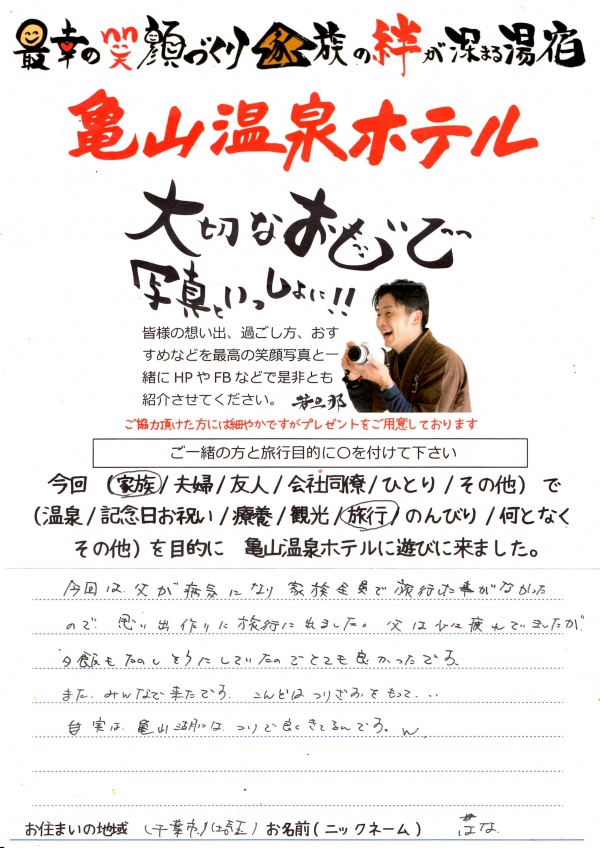 最幸の笑顔づくり家族の絆が深まる湯宿
亀山温泉ホテル
大切なおもいで
写真といっしょに!!
皆様の想い出、過ごし方、おす
すめなどを最高の笑顔写真と一
緒にHPやFBなどで是非とも
紹介させてください。 若旦那
ご協力頂けた方には細やかですがプレゼントをご用意しております
ご一緒の方と旅行目的に〇を付けて下さい
今回 (家族/夫婦/友人/会社同僚/ひとり/その他) で
(温泉/記念日お祝い/療養/観光/旅行/のんびり/何となく
その他) を目的に 亀山温泉ホテルに遊びに来ました。
今回は父が病気になり家族全員で旅行した事がなかった
ので 思い出作りに旅行に出ました。父は少し疲れていましたが
夕飯もたのしそうにしていたのでとても良かったです。
また、みんなで来たいです。こんどはつりざおをもって...
実は、亀山湖には、つりで良くきてるんです。
お住まいの地域 (千葉市) お名前(ニックネーム) はな